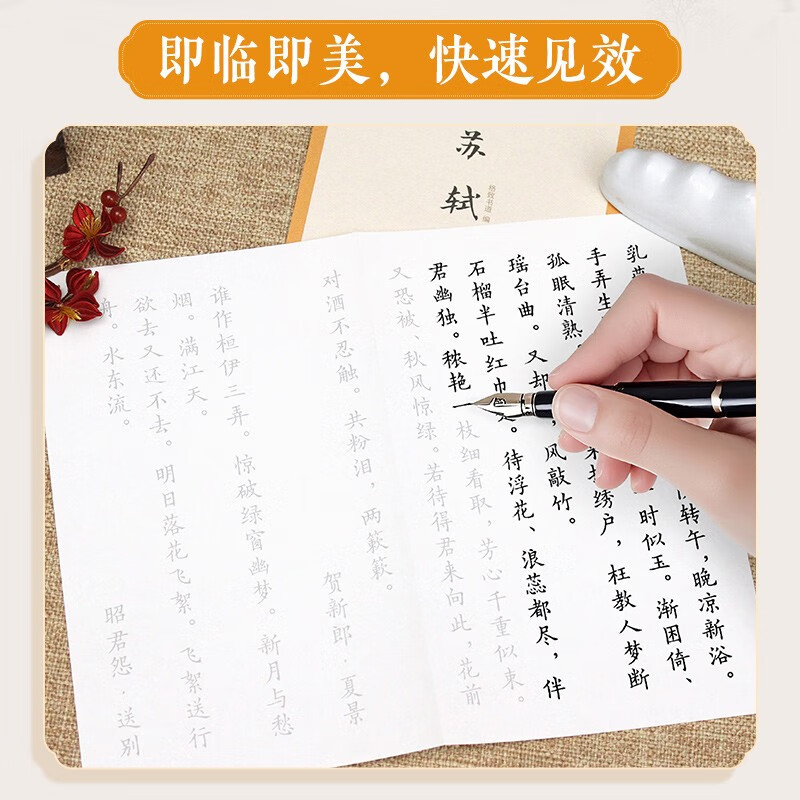 即临即美，快速见效
苏轼
杨政书道 编
乳燕
手弄生
孤眠清熟。
瑶台曲。又却
石榴半吐红巾
君幽独。秾艳
又恐被、秋风惊绿。若待得君来向此，花前
对酒不忍触。共粉泪，两簌簌。
贺新郎·夏景
谁作桓伊三弄。惊破绿窗幽梦。新月与愁
烟。满江天。
欲去又还不去。明日落花飞絮。飞絮送行
舟。水东流。
昭君怨·送别
转午，晚凉新浴。
时似玉。渐困倚、
绣户，枉教人梦断
风敲竹。
。待浮花、浪蕊都尽，伴
枝细看取，芳心千重似束。